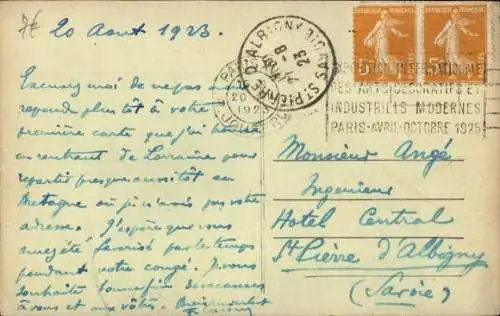 7€
20 Aout 1923.
Excusez moi de ne pas avoir
repondu plutôt à votre
première carte que j'ai trouvée
en rentrant de Lorraine pour
repartir presque aussitôt en
Bretagne où je n'avais pas votre
adresse. J'espère que vous
avez été favorisé par le temps
pendant votre congé. Je vous
souhaite bonne fin de vacances
à vous et aux vôtres.
ST PIERRE D'ALBIGNY
SAVOIE
23 -8
20
192
EXPOSITION INTERNATIONALE
DES ARTS DECORATIFS ET
INDUSTRIELS MODERNES
PARIS-AVRIL-OCTOBRE 1925
Monsieur Angé
Ingenieur
Hotel Central
St Pierre d'Albigny
(Savoie)